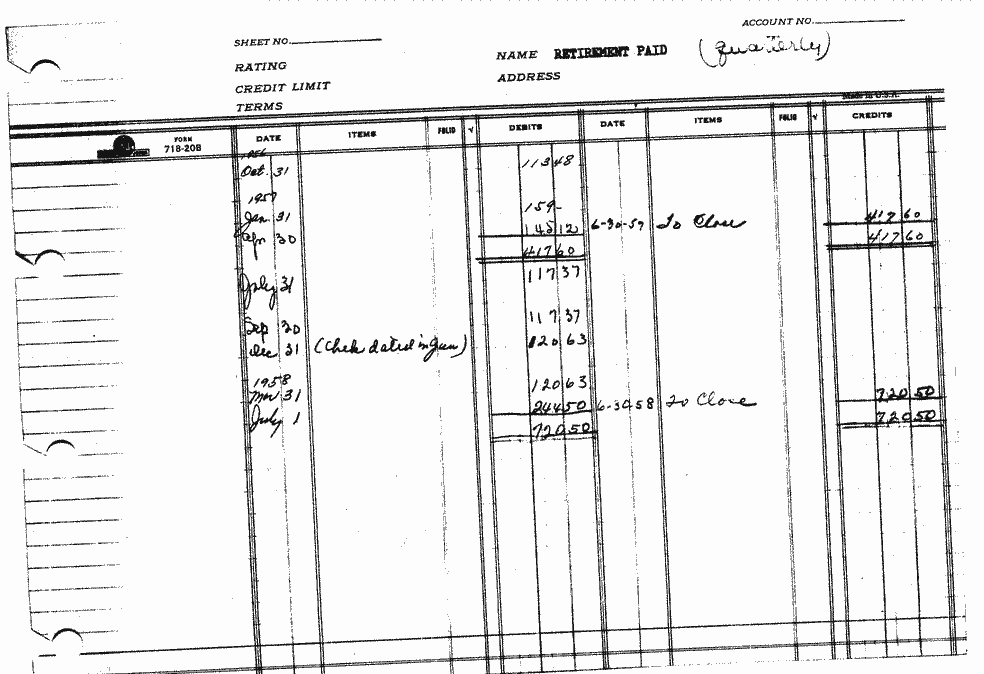 ACCOUNT NO.
SHEET NO.
NAME RETIREMENT PAID (quarterly)
RATING
ADDRESS
CREDIT LIMIT
TERMS
Made in U.S.A.
FORM 718-20B DATE ITEMS FOLIO √ DEBITS DATE ITEMS FOLIO √ CREDITS
1956
Oct. 31 113 48
1957
Jan. 31 159 -
Apr 30 145 12 6-30-57 To Close 417 60
417 60 417 60
July 31 117 37
Sep 30 117 37
Dec 31 (Chek dated in Jan) 120 63
1958
Mar 31 120 63
July 1 244 50 6-30-58 To Close 720 50
720 50 720 50